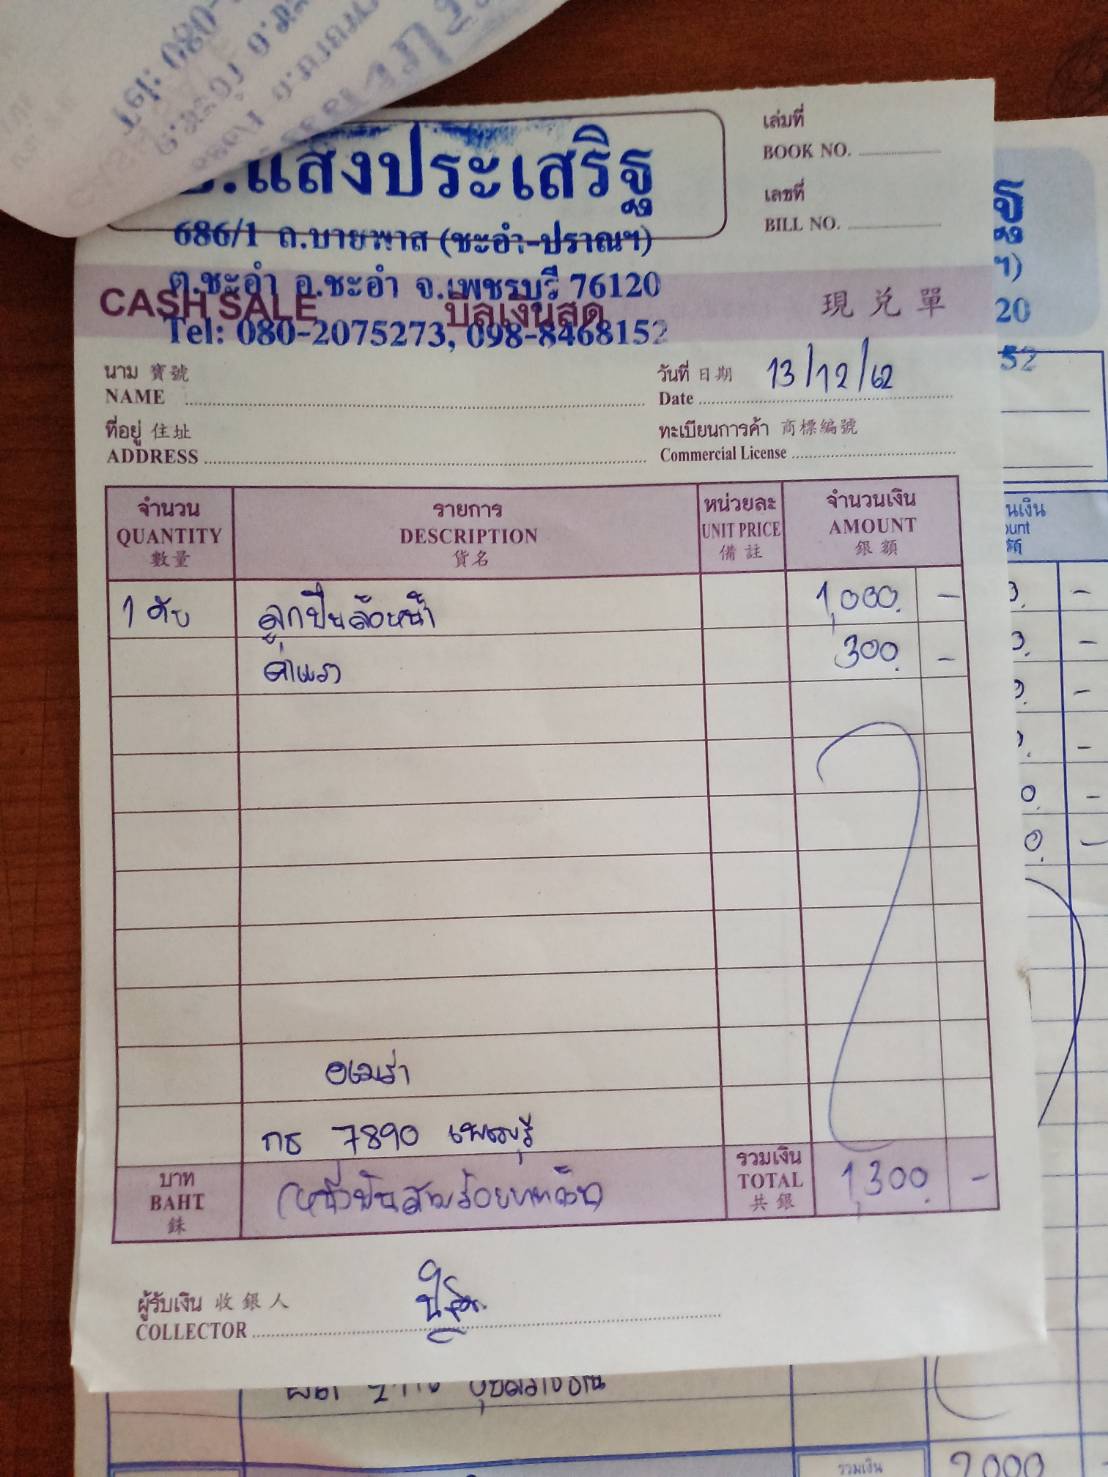 แสงประเสริฐ
686/1 ถ.บายพาส (ชะอำ-ปราณฯ)
ต.ชะอำ อ.ชะอำ จ.เพชรบุรี 76120
Tel: 080-2075273, 098-8468152
เล่มที่
BOOK NO.
เลขที่
BILL NO.
CASH SALE บิลเงินสด 現兌單
นาม 寶號
NAME
วันที่ 日期 13/12/62
Date
ที่อยู่ 住址
ADDRESS
ทะเบียนการค้า 商標編號
Commercial License
จำนวน รายการ หน่วยละ จำนวนเงิน
QUANTITY DESCRIPTION UNIT PRICE AMOUNT
數量 貨名 備註 銀額
1 ตับ ลูกปืนล้อหน้า 1,000. -
ค่าแรง 300. -
กธ 7890 เพชรบุรี
บาท รวมเงิน
BAHT (หนึ่งพันสามร้อยบาทถ้วน) TOTAL 1,300. -
銖 共銀
ผู้รับเงิน 收銀人
COLLECTOR
รวมเงิน